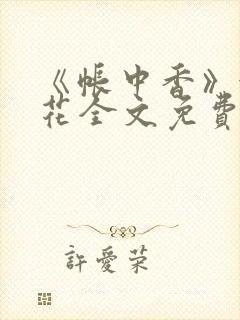 《帐中香》
花全文免費
許愛荣